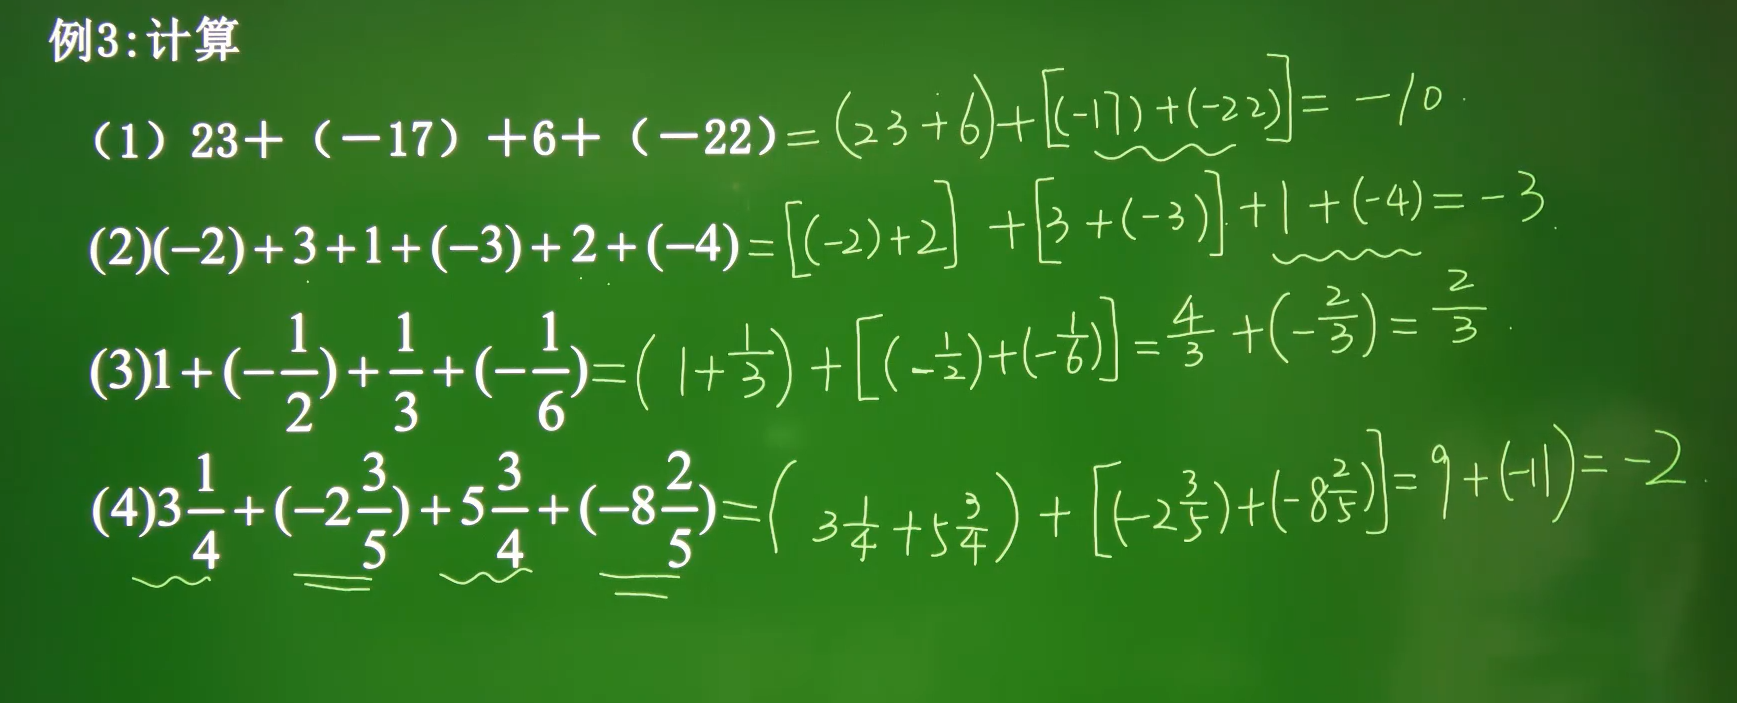 例3:计算
（1）23＋（－17）＋6＋（－22）=(23+6)+[(-17)+(-22)]=-10.
(2)(−2)+3+1+(−3)+2+(−4)=[(-2)+2]+[3+(-3)]+1+(-4)=-3.
(3)1+(−1/2)+1/3+(−1/6)=(1+1/3)+[(-1/2)+(-1/6)]=4/3+(-2/3)=2/3.
(4)3 1/4+(−2 3/5)+5 3/4+(−8 2/5)=(3 1/4+5 3/4)+[(-2 3/5)+(-8 2/5)]=9+(-11)=-2.